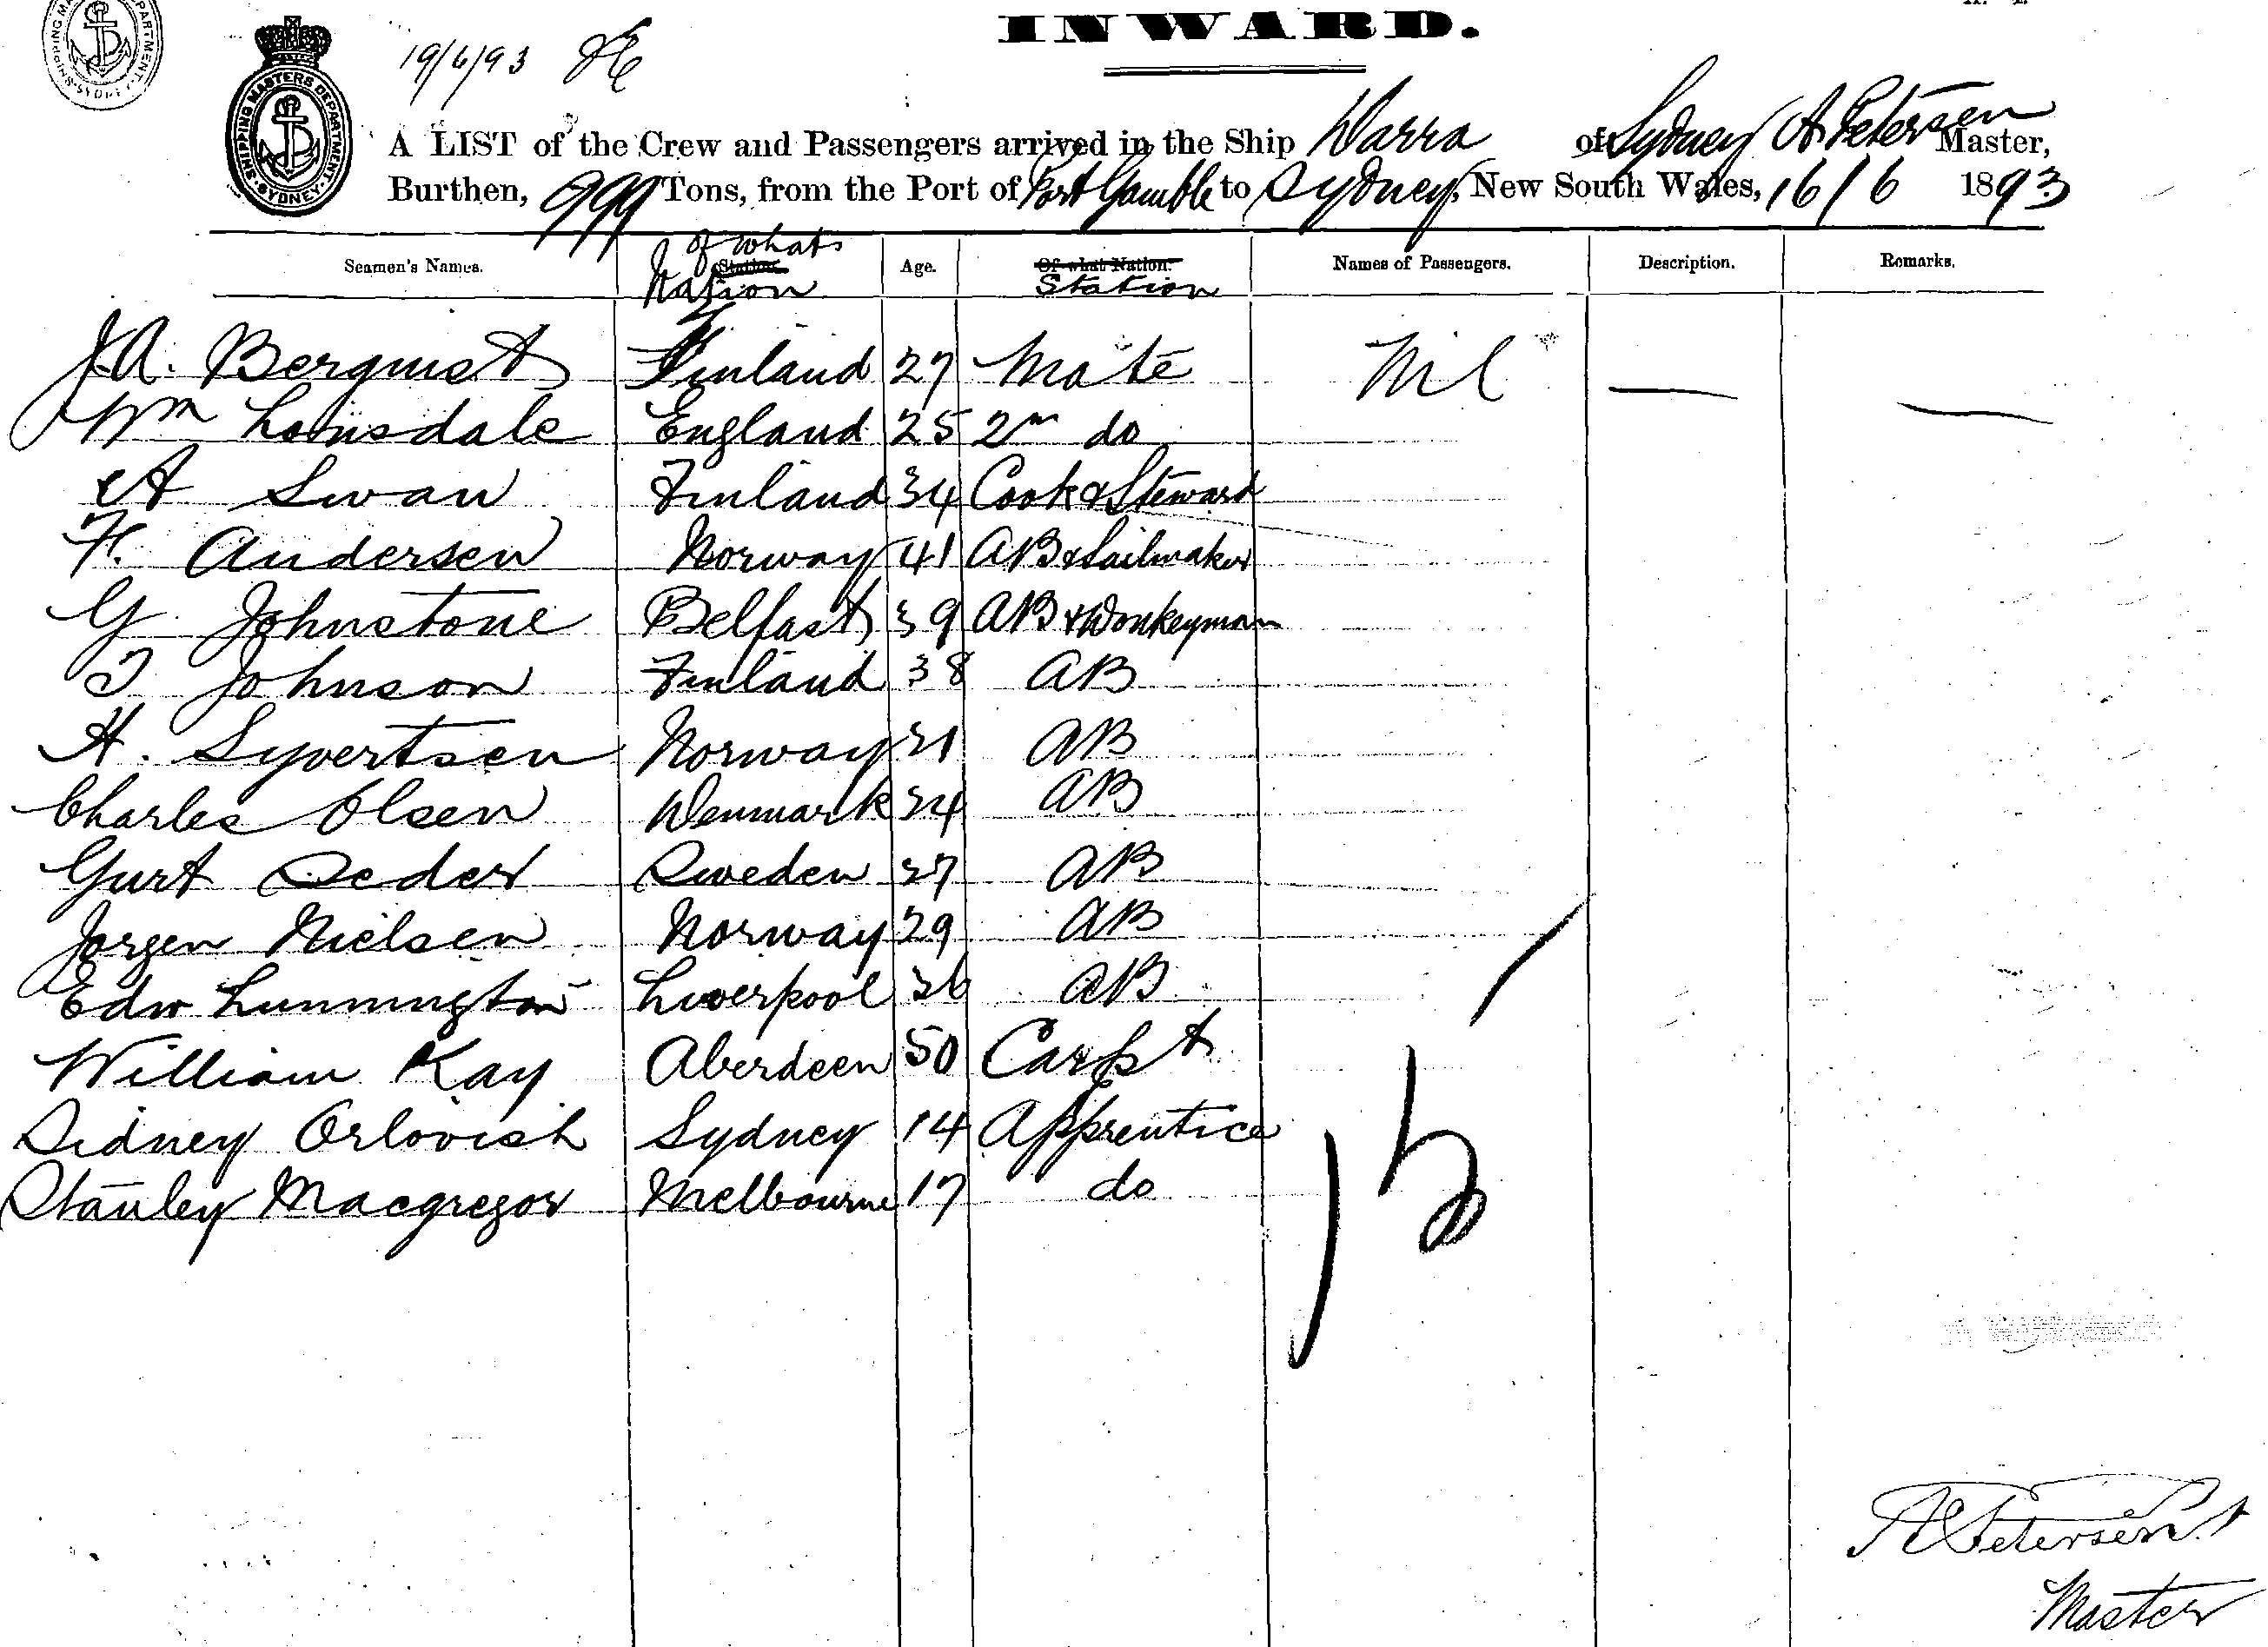 INWARD.
19/6/93
SHIPPING MASTERS DEPARTMENT SYDNEY
A LIST of the Crew and Passengers arrived in the Ship Warra of Sydney A. Petersen Master,
Burthen, 999 Tons, from the Port of Port Gamble to Sydney, New South Wales, 16/6 1893
Seamen's Names. Station of what Nation Age. Of what Nation. Station Names of Passengers. Description. Remarks.
J.A. Berquist Finland 27 Mate Nil
Wm Lonsdale England 25 2nd do
A Swan Finland 34 Cook & Steward
F. Andersen Norway 41 AB & Sailmaker
G Johnstone Belfast 39 AB & Donkeyman
T Johnson Finland 38 AB
H. Syvertsen Norway 31 AB
Charles Olsen Denmark 34 AB
Gurt Seder Sweden 37 AB
Jorgen Nielsen Norway 29 AB
Edw Lunnington Liverpool 36 AB
William Kay Aberdeen 50 Carpt
Sidney Orlovich Sydney 14 Apprentice
Stanley Macgregor Melbourne 17 do
A Petersen
Master